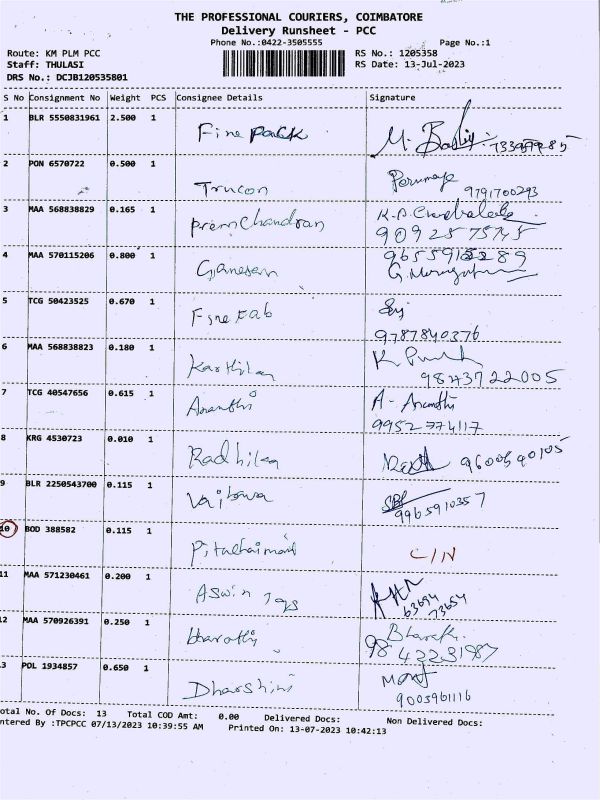 THE PROFESSIONAL COURIERS, COIMBATORE
Delivery Runsheet - PCC
Phone No.:0422-3505555 Page No.:1
Route: KM PLM PCC RS No.: 1205358
Staff: THULASI RS Date: 13-Jul-2023
DRS No.: DCJB120535801
S No Consignment No Weight PCS Consignee Details Signature
1 BLR 5550831961 2.500 1
Fine Pack
2 PON 6570722 0.500 1
Trucon 9791700293
3 MAA 568838829 0.165 1
premchandran 90925 75745
4 MAA 570115206 0.800 1
Ganesan
5 TCG 50423525 0.670 1
Fine Fab
9787840376
6 MAA 568838823 0.180 1
Karthika 98437 22005
7 TCG 40547656 0.615 1
Ananthi A - Ananthi
9952774117
8 KRG 4530723 0.010 1
Radhika
9 BLR 2250543700 0.115 1
9965910357
10 BOD 388582 0.115 1
C/N
11 MAA 571230461 0.200 1
Aswin
63694
73654
12 MAA 570926391 0.250 1
bharathi Bharathi
98 42231987
3 POL 1934857 0.650 1
Dharshini
9003961116
otal No. Of Docs: 13 Total COD Amt: 0.00 Delivered Docs: Non Delivered Docs:
ntered By :TPCPCC 07/13/2023 10:39:55 AM Printed On: 13-07-2023 10:42:13